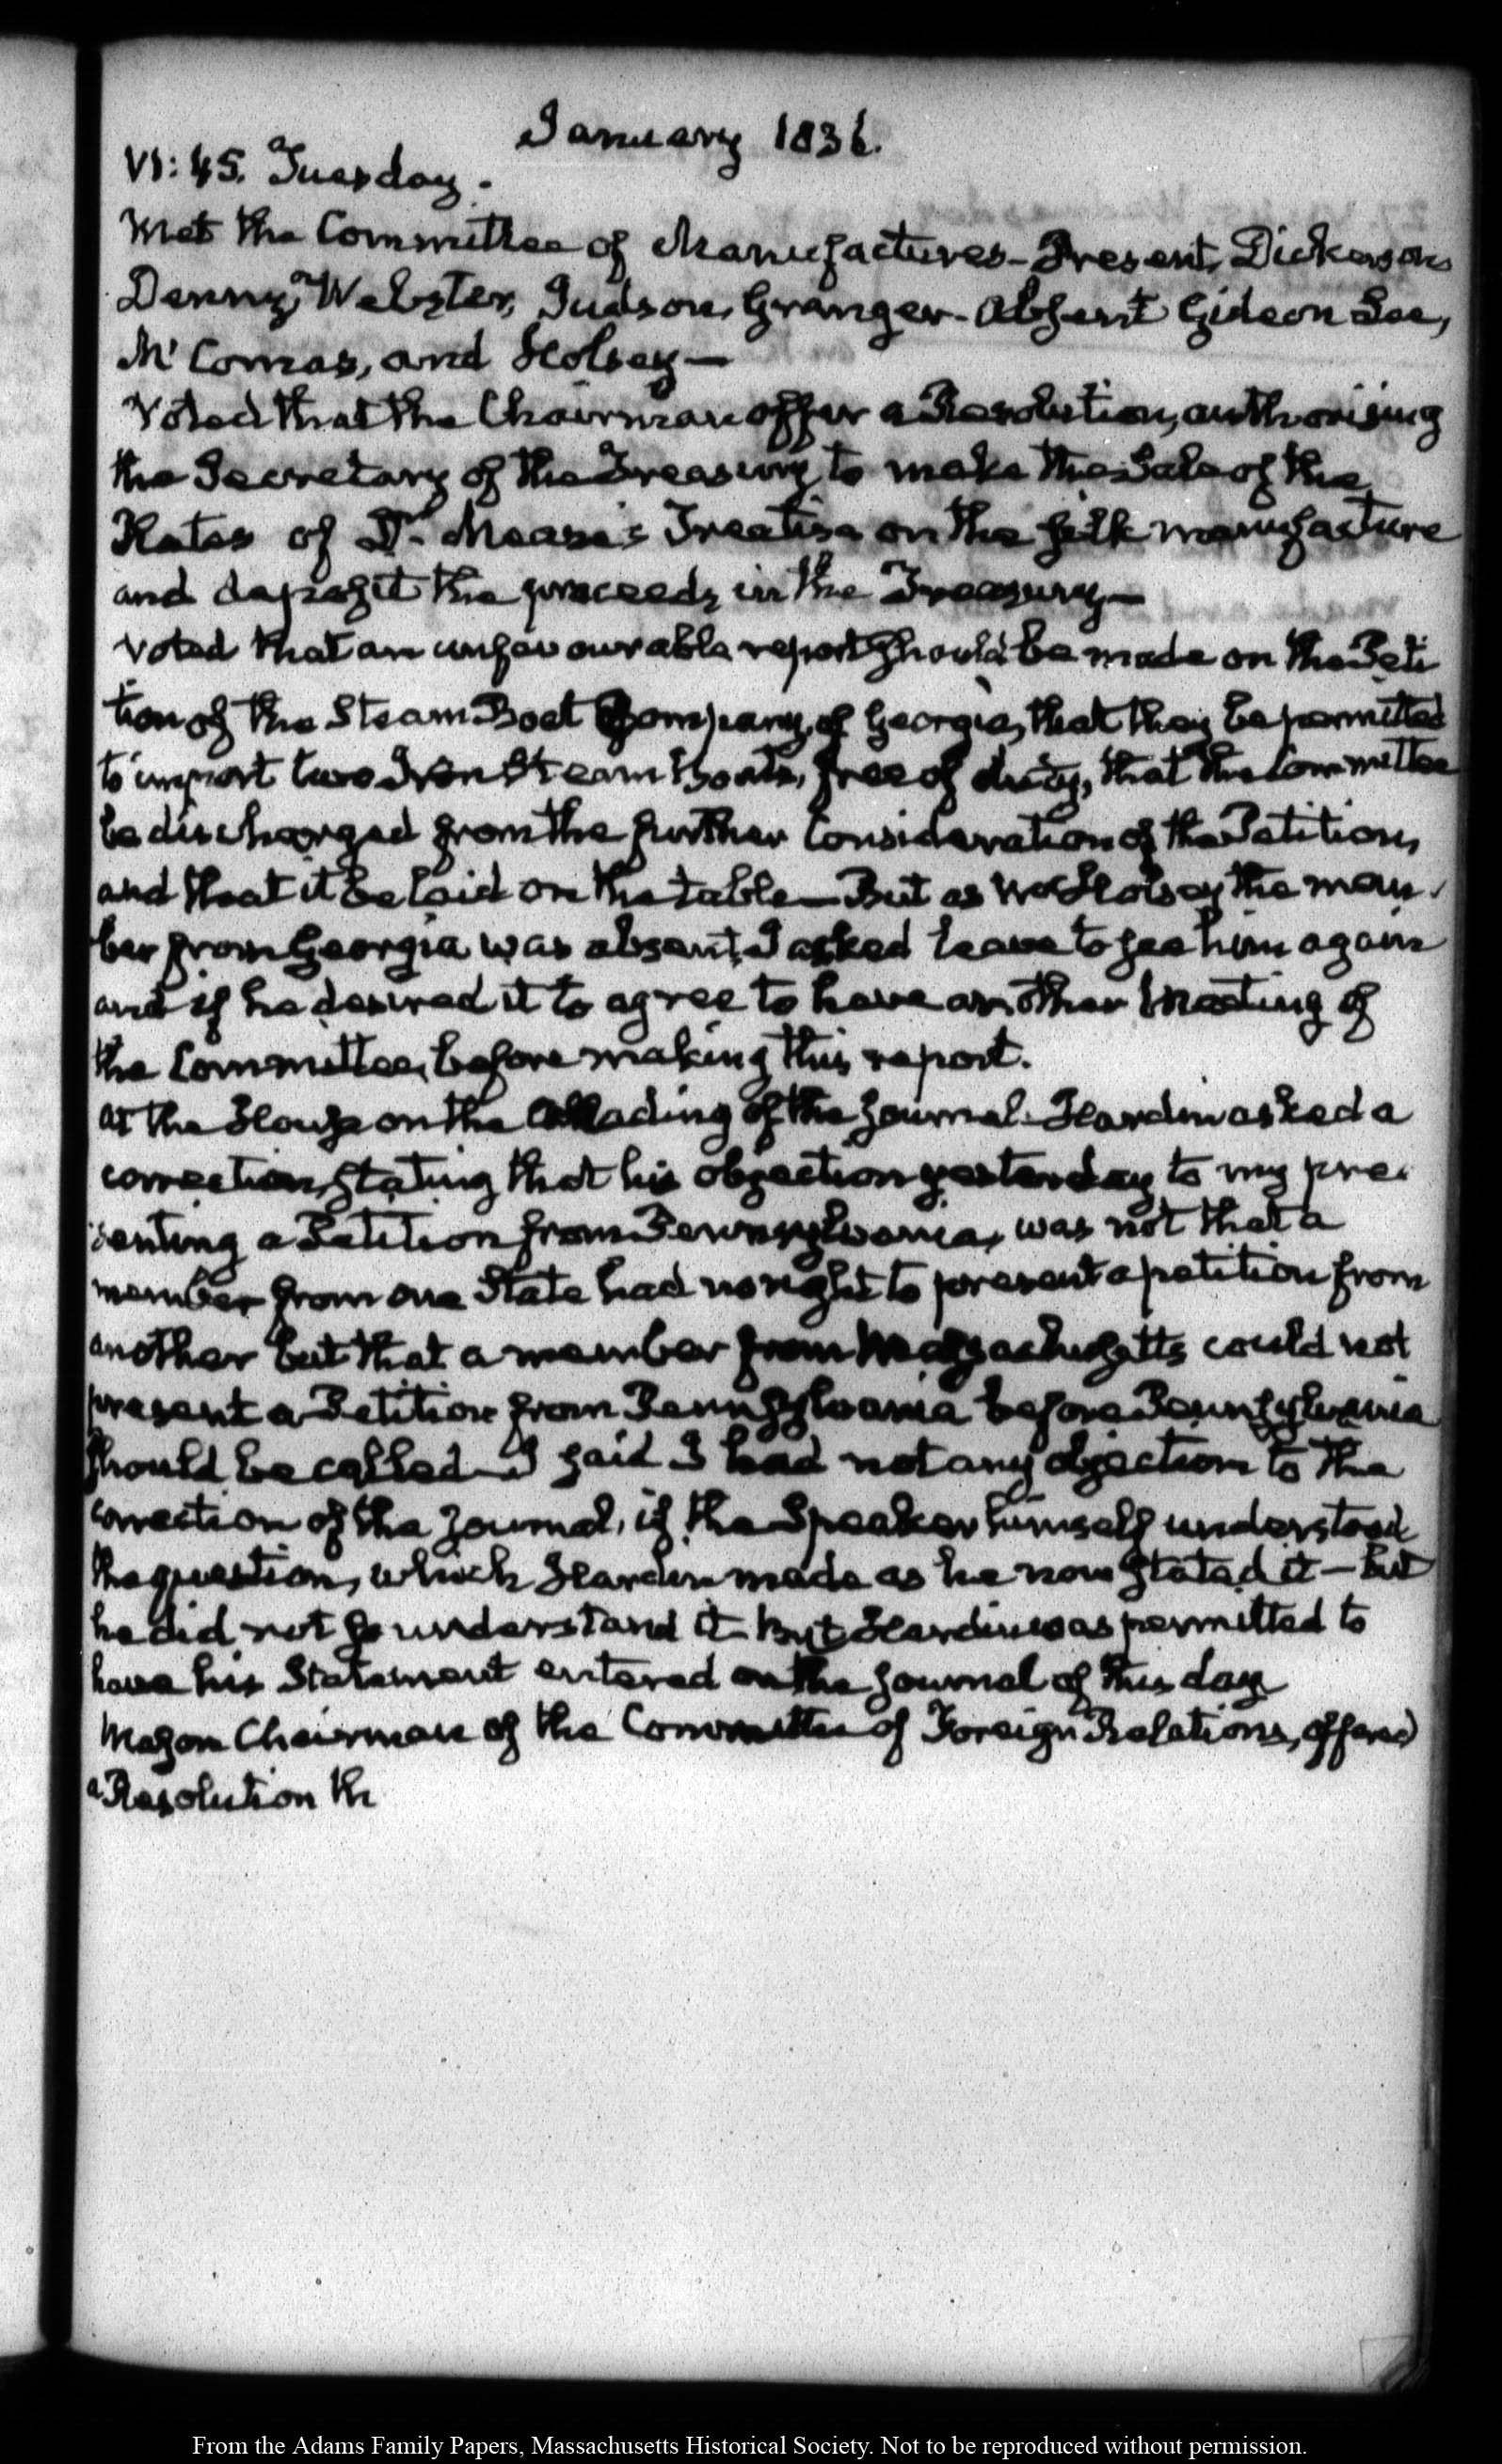 January 1836.
VI:45. Tuesday.
Met the Committee of Manufactures – Present, Dickerson
Denny, Webster, Judson, Granger – Absent Gideon Lee,
McComas, and Holsey —
Voted that the Chairman offer a Resolution, authorising
the Secretary of the Treasury to make the Sale of the
Plates of Dr. Mease's Treatise on the silk manufacture
and deposit the proceeds in the Treasury —
voted that an unfavourable report should be made on the Peti
tion of the Steam Boat Company, of Georgia, that they be permitted
to import two Iron Steam Boats, free of duty, that the Committee
be discharged from the further Consideration of the Petition,
and that it be laid on the table — But as Mr Holsey the mem
ber from Georgia was absent, I asked leave to see him again
and if he desired it to agree to have another Meeting of
the Committee, before making this report.
at the House on the reading of the Journal. Hardin asked a
correction, stating that his objection yesterday to my pre
senting a Petition from Pennsylvania, was not that a
member from one State had no right to present a petition from
another but that a member from Massachusetts could not
present a Petition from Pennsylvania before Pennsylvania
should be called – I said I had not any objection to the
correction of the Journal, if the Speaker himself understood
the question, which Hardin made as he now stated it – but
he did not so understand it – But Hardin was permitted to
have his Statement entered on the Journal of this day
Mason Chairman of the Committee of Foreign Relations, offered
a Resolution th
From the Adams Family Papers, Massachusetts Historical Society. Not to be reproduced without permission.